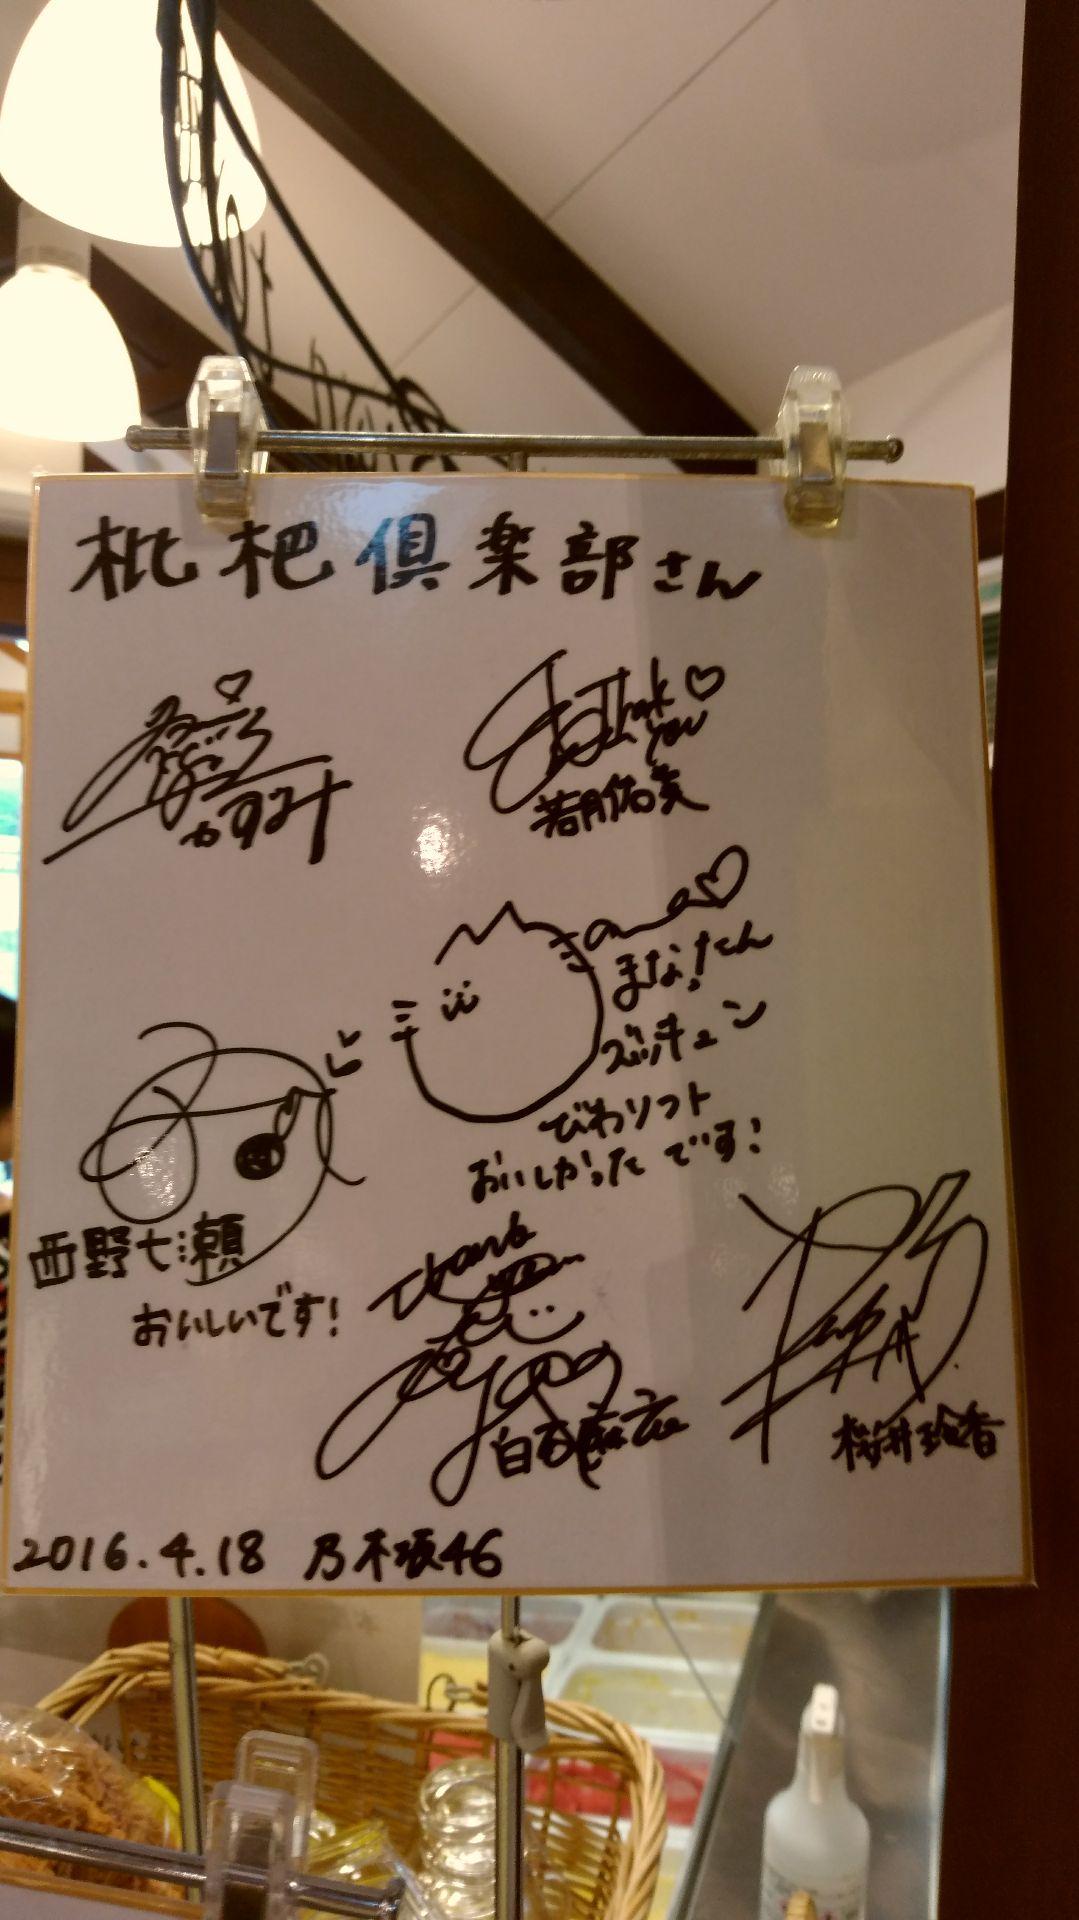 枇杷倶楽部さん
かすみ
Thank
you
若月佑美
まなったん
ズッキュン
びわソフト
おいしかったです!
西野七瀬
おいしいです!
Thank
you
白石麻衣
桜井玲香
2016.4.18 乃木坂46